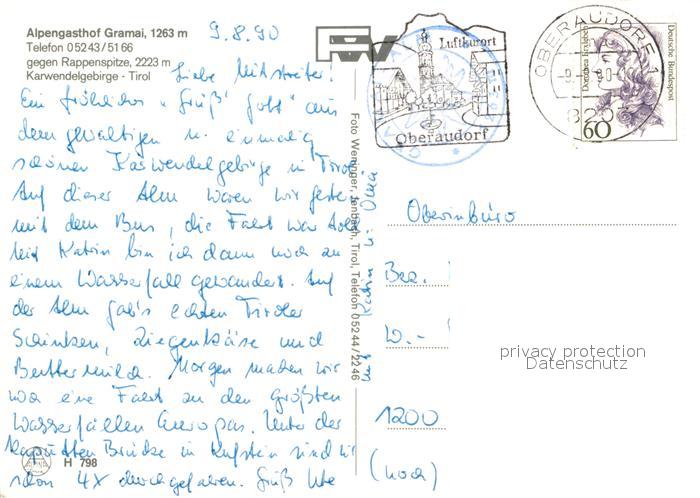 Alpengasthof Gramai, 1263 m
Telefon 05243/5166
gegen Rappenspitze, 2223 m
Karwendelgebirge - Tirol
9.8.90
Liebe Mitstreiter!
Ein fröhliches "Grüß' Gott" aus
dem gewaltigen u. einmalig
schönen Karwendelgebirge in Tirol.
Auf dieser Alm waren wir gestern
mit dem Bus, die Fahrt war toll.
Mit Katrin bin ich dann noch zu
einem Wasserfall gewandert. Auf
der Alm gab's echten Tiroler
Schinken, Ziegenkäse und
Buttermilch. Morgen machen wir
noch eine Fahrt zu den größten
Wasserfällen Europas. Unter der
kaputten Brücke in Kufstein sind wir
schon 4x durchgefahren. Grüß Ute
und Katrin u. Omi
H 798
Foto Weninger, Jenbach, Tirol, Telefon 05244/2246
Luftkurort
Oberaudorf
OBERAUDORF 1
-9.-8.90-
820
Dorothea Erxleben
Deutsche Bundespost
60
Oberinbüro
Bez.
W.-
1200
(noch)
privacy protection
Datenschutz